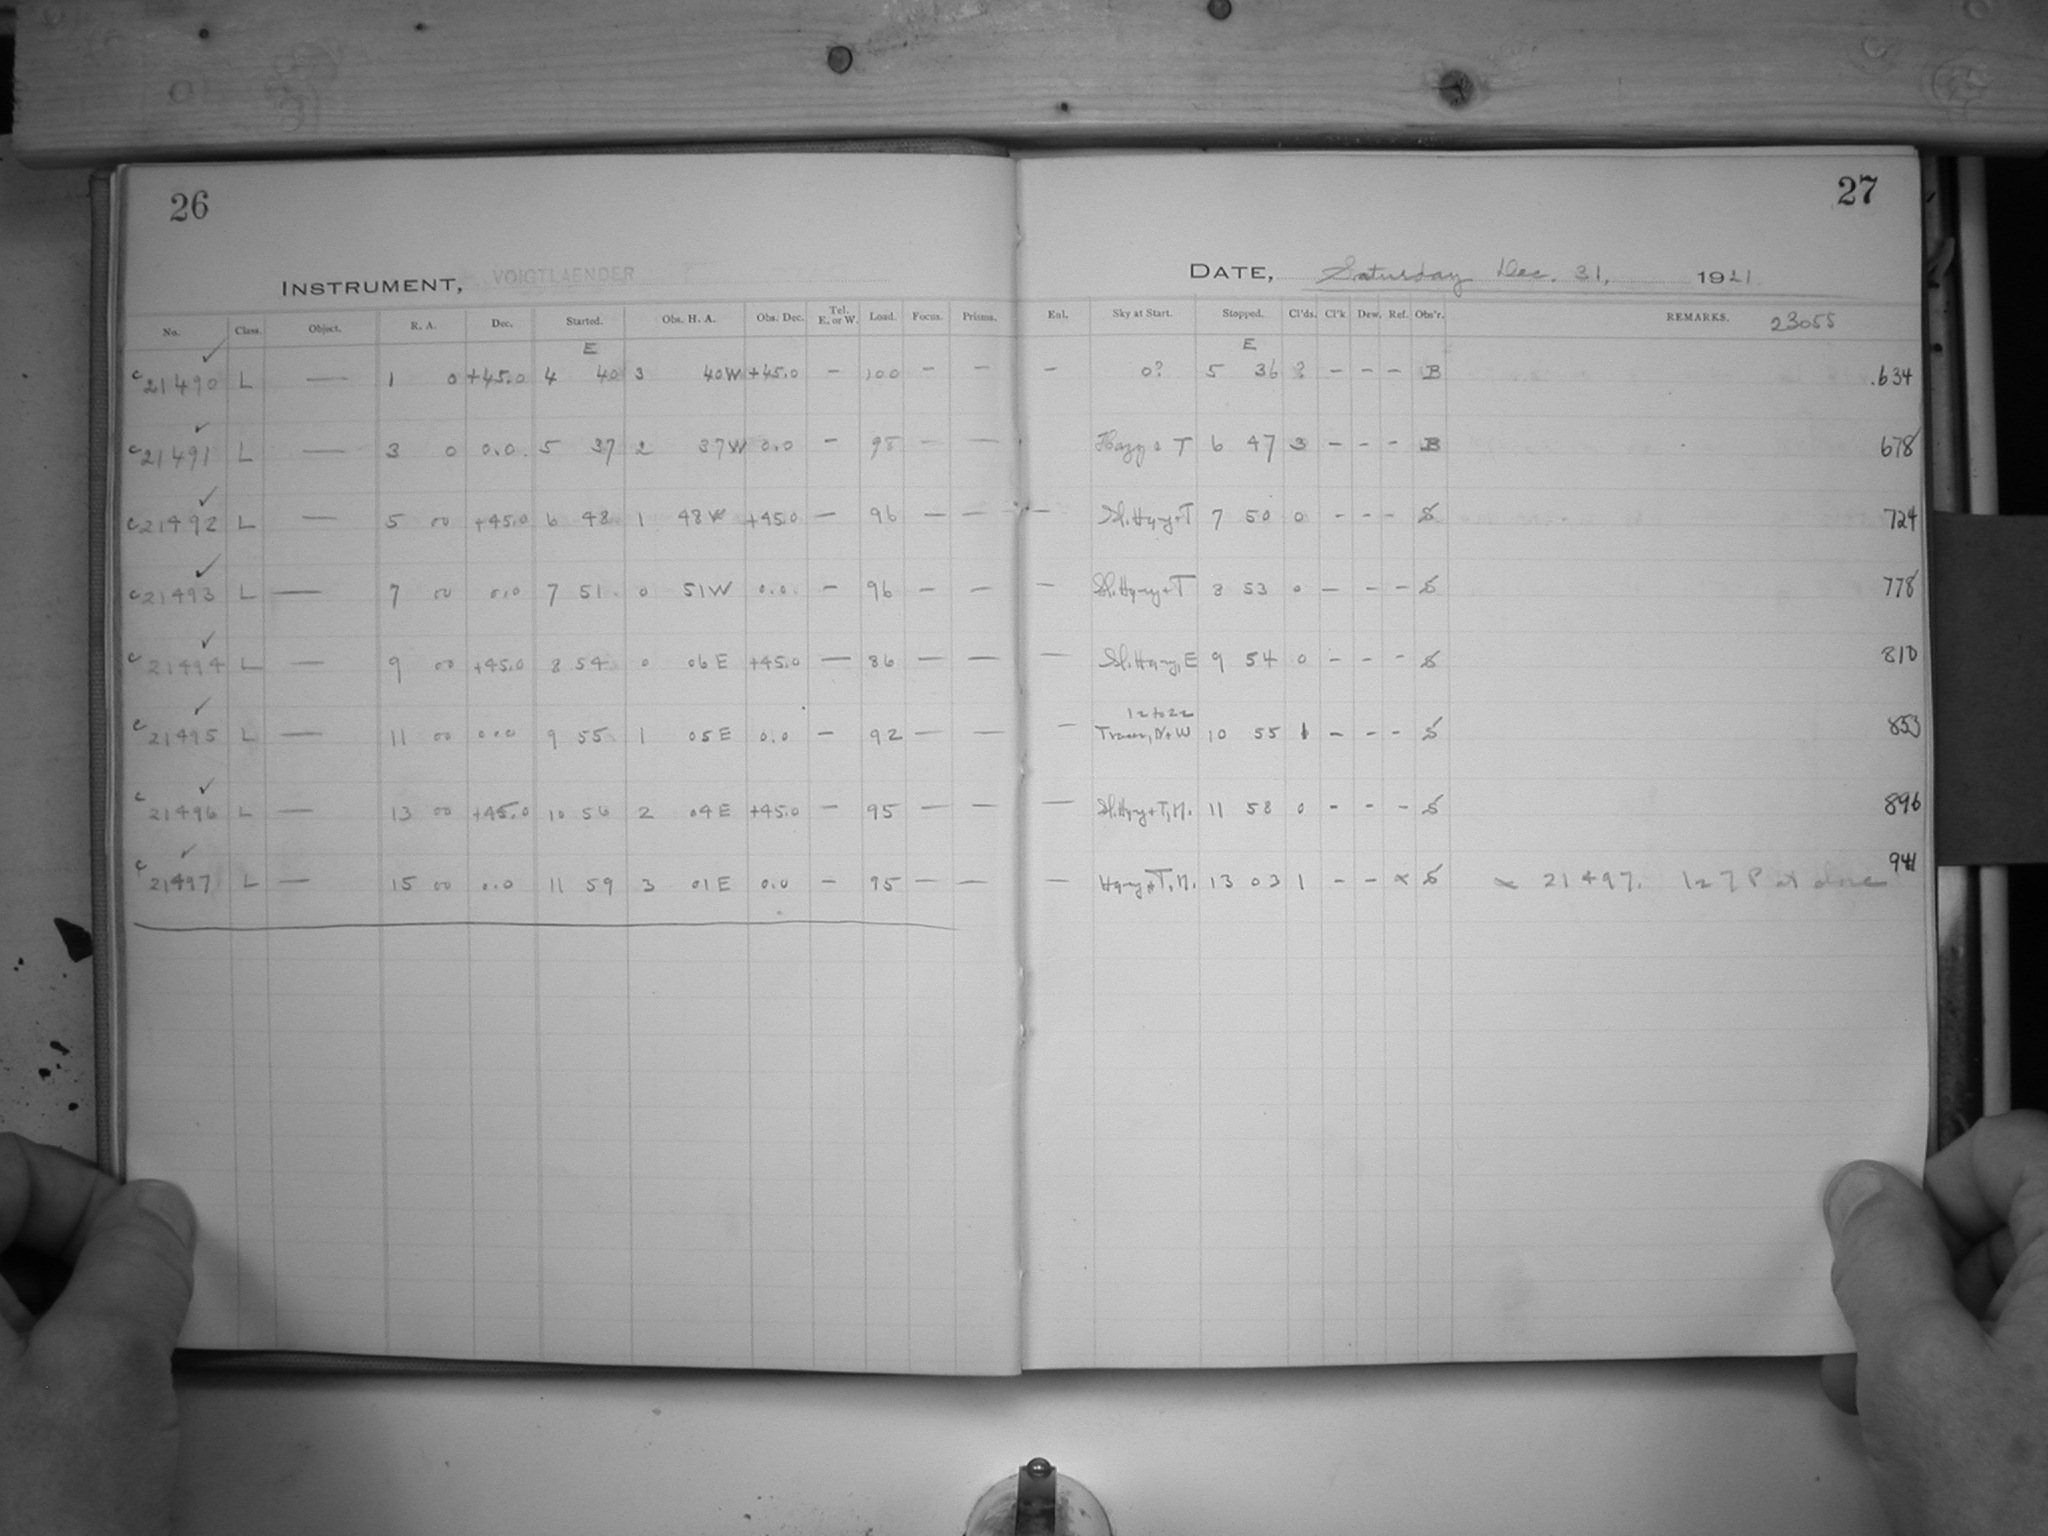 26
27
INSTRUMENT, VOIGTLAENDER
DATE, Saturday Dec. 31, 1921.
No. Class. Object. R. A. Dec. Started. Obs. H. A. Obs. Dec. Tel. E. or W. Load. Focus. Prisms. Enl. Sky at Start. Stopped. Cl'ds. Cl'k Dew. Ref. Obs'r. REMARKS. 23055
E E
c 21490 L — 1 0 +45.0 4 40 3 40W +45.0 – 100 – – – 0? 5 36 ? – – – B .634
c 21491 L — 3 0 0.0 5 37 2 37W 0.0 – 98 – – Hazy + T 6 47 3 – – – B 678
c 21492 L — 5 00 +45.0 6 48 1 48W +45.0 – 96 – – – Sl. Hazy + T 7 50 0 – – – S 724
c 21493 L — 7 00 0.0 7 51 0 51W 0.0 – 96 – – – Sl. Hazy + T 8 53 0 – – – S 778
c 21494 L — 9 00 +45.0 8 54 0 06E +45.0 – 86 – – – Sl. Hazy, E 9 54 0 – – – S 810
12 to 22
c 21495 L — 11 00 0.0 9 55 1 05E 0.0 – 92 – – – N+W 10 55 1 – – – S 853
c 21496 L — 13 00 +45.0 10 56 2 04E +45.0 – 95 – – – Sl. Hazy + T, N. 11 58 0 – – – S 896
c 21497 L — 15 00 0.0 11 59 3 01E 0.0 – 95 – – – Hazy + T, N. 13 03 1 – – x S x 21497. 127 P at close 941